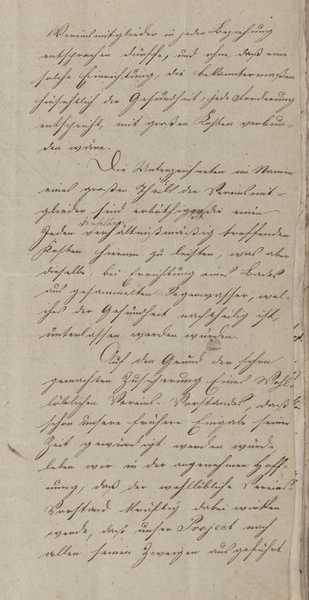 Vereinsmitglieder in jeder Beziehung
entsprechen dürfte, und ohne, daß eine
solche Einrichtung, die bekanntermaßen
hinsichtlich der Gesundheit, jede Forderung
entspricht, mit großen Kosten verbun-
den wäre.
Die Unterzeichneten im Namen
eines großen Theils der Vereinsmit-
glieder sind erböthig, die einen
Jeden verhältnißmäßig treffenden
Kosten hierin zu leisten, was aber
dieselbe bei Errichtung eines Bades
aus gesammelten Regenwasser, wel-
ches der Gesundheit nachtheilig ist,
unterlassen werden würden.
Auf den Grund der schon
gemachten Zusicherung Eines Wohl-
löblichen Vereins-Vorstandes, daß
schon unsere frühere Eingabe seiner
Zeit gewürdigt werden würde,
leben wir in der angenehmen Hoff-
nung, daß der wohllöbliche Vereins
Vorstand kräftig dabei wirken
werde, daß unser Project nach
allen seinen Zweigen ausgeführt